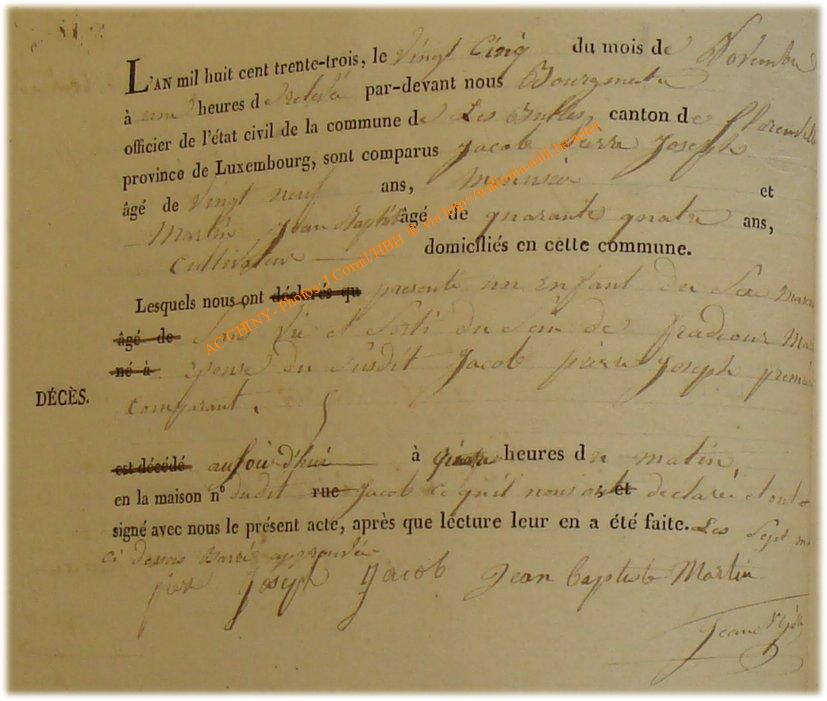 L'AN mil huit cent trente-trois, le vingt Cinq du mois de Novembre
à une heures de Relevé par-devant nous Bourgmestre
officier de l'état civil de la commune de Les Bulles, canton de florenville
province de Luxembourg, sont comparus Jacob Pierre Joseph
âgé de vingt neuf ans, menuisier et
Martin Jean Baptiste âgé de quarante quatre ans,
Cultivateur domiciliés en cette commune.
Lesquels nous ont déclarés qu présenté un enfant du Sexe mascu
âgé de Sans Vie et Sorti du Sein de Mar
né à épouse du Susdit Jacob pierre Joseph premier
DÉCÈS.
comparant.
est décédé aujourd'hui à quatre heures du matin,
en la maison n° dudit rue Jacob ce qu'il nous ont et déclaré et ont
signé avec nous le présent acte, après que lecture leur en a été faite. Les Sept mots
ci dessus Barré approuvée
piere Joseph Jacob Jean baptiste Martin
ACCHINY- photos J Corail/HBH ©